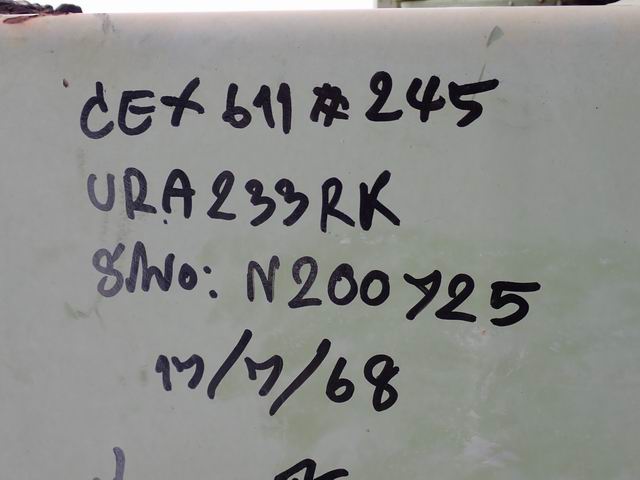 CEX 611 # 245
URA 233RK
S/No: N200Y25
17/7/68